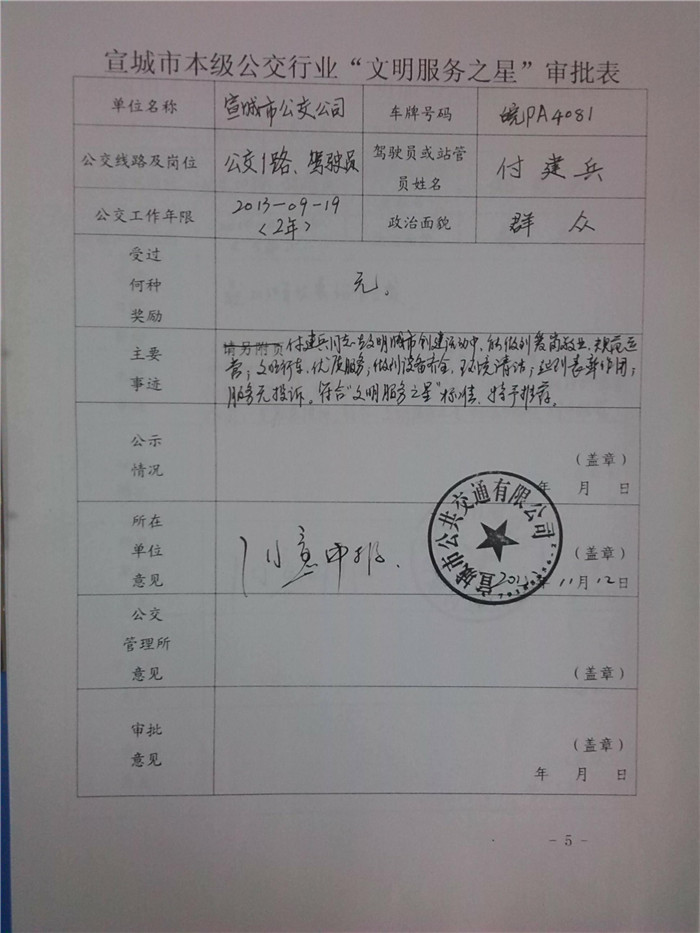 宣城市本级公交行业“文明服务之星”审批表
单位名称 宣城市公交公司 车牌号码 皖PA4081
公交线路及岗位 公交1路、驾驶员 驾驶员或站管员姓名 付建兵
公交工作年限 2013-09-19 (2年) 政治面貌 群众
受过何种奖励 无。
主要事迹 请另附页 付建兵同志在文明城市创建活动中,能做到爱岗敬业、规范运
营;文明行车、优质服务;做到设备齐全,环境清洁;
服务无投诉。符合“文明服务之星”标准,特予推荐。
公示情况 (盖章)
年 月 日
宣城市公共交通有限公司
所在单位意见 同意申报. (盖章)
年11月12日
公交管理所意见 (盖章)
审批意见 (盖章)
年 月 日
- 5 -